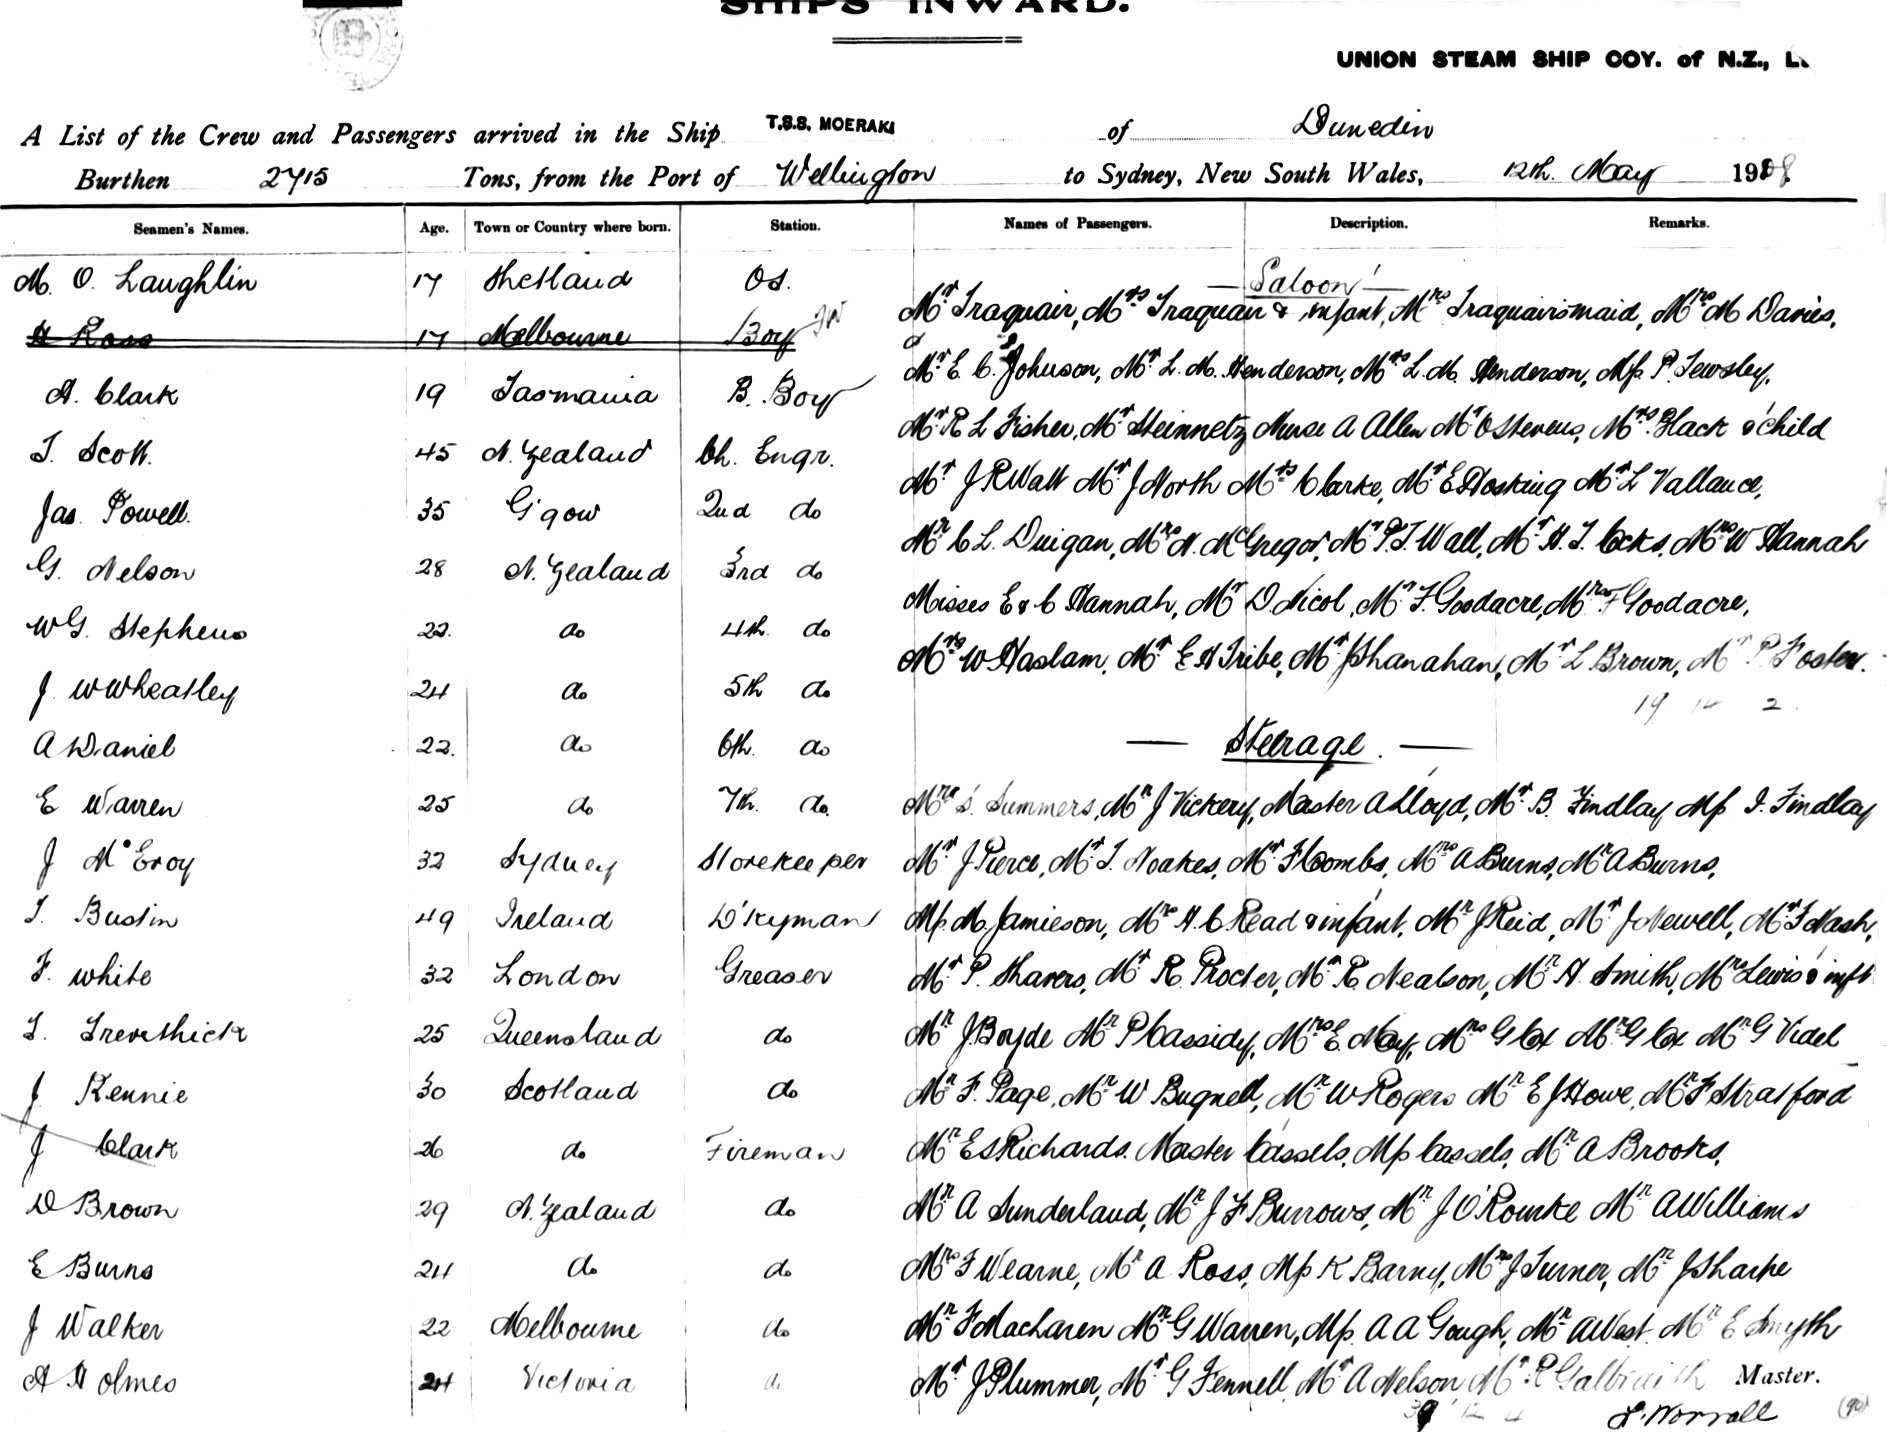 SHIPS INWARD.
UNION STEAM SHIP COY. of N.Z.,
A List of the Crew and Passengers arrived in the Ship T.S.S. MOERAKI of Dunedin
Burthen 2715 Tons, from the Port of Wellington to Sydney, New South Wales, 12th. May 1908
Seamen's Names. Age. Town or Country where born. Station. Names of Passengers. Description. Remarks.
M. O. Laughlin 17 Shetland O.S.
H Ross 17 Melbourne Boy
A. Clark 19 Tasmania B. Boy
T. Scott. 45 N. Zealand Ch. Engr.
Jas. Powell. 35 G'gow 2nd do
G. Nelson 28 N. Zealand 3rd do
W G. Stephens 22. do 4th. do
J. W Wheatley 24 do 5th do
A Daniel 22. do 6th. do
E Warren 25 do 7th. do.
J McEroy 32 Sydney Storekeeper
T. Bustin 49 Ireland D'kyman
F. White 32 London Greaser
T. Trevithick 25 Queensland do
J. Rennie 30 Scotland do
J Clark 26 do Fireman
D Brown 29 N. Zealand do
E Burns 24 do do
J Walker 22 Melbourne do
A Holmes 24 Victoria do
— Saloon —
Mr Traquair, Mrs Traquair & infant, Mrs Traquair's maid, Mrs M Davies,
Mr E. C. Johnson, Mr L. M. Henderson, Mrs L. M. Henderson, Miss P. Tewsley,
Mr R L Fisher, Mr Steinnetz Nurse A Allen Mr O Stevens, Mrs Black & child
Mr J R Watt Mr J North Mrs Clarke, Mr E Hosking Mr L Vallance,
Mr C L. Duigan, Mrs N. McGregor, Mr P. T. Wall, Mr H. T. Cocks, Mrs W Hannah
Misses E & C Hannah, Mr D Nicol, Mr F. Goodacre, Mrs F Goodacre,
Mrs W Haslam, Mr E H Tribe, Mr J Shanahan, Mr L Brown, Mr P. Foster.
19 14 2
— Steerage. —
Mrs S. Summers, Mr J Vickery, Master A Lloyd, Mr B. Findlay Miss I. Findlay
Mr J Pierce, Mr T. Noakes, Mr F Coombs, Mrs A Burns, Mr A Burns,
Miss M. Jamieson, Mrs H. C Read & infant, Mr J Reid, Mr J Newell, Mr F Nash,
Mr P. Shavers, Mr R. Procter, Mr R. Nealson, Mr H. Smith, Mrs Lewis & inft
Mr J. Boyde Mr P Cassidy, Mrs E. May, Mrs G Cox Mr G Cox Mr G Videl
Mr F. Page, Mr W Bugnell, Mr W Rogers Mr E J Howe, Mr F Stratford
Mr E S Richards. Master Cassels, Miss Cassels, Mr A Brooks,
Mr A Sunderland, Mr J F Burrows, Mr J O'Rourke Mr A Williams
Mrs F Wearne, Mr A Ross, Miss K Barny, Mrs J Turner, Mr J Sharpe
Mr F Maclaren Mr G Warren, Miss A A Gough, Mr A West, Mr E Smyth
Mr J Plummer, Mr G Fennell, Mr A Nelson Mr R Galbraith Master.
J. Worrall